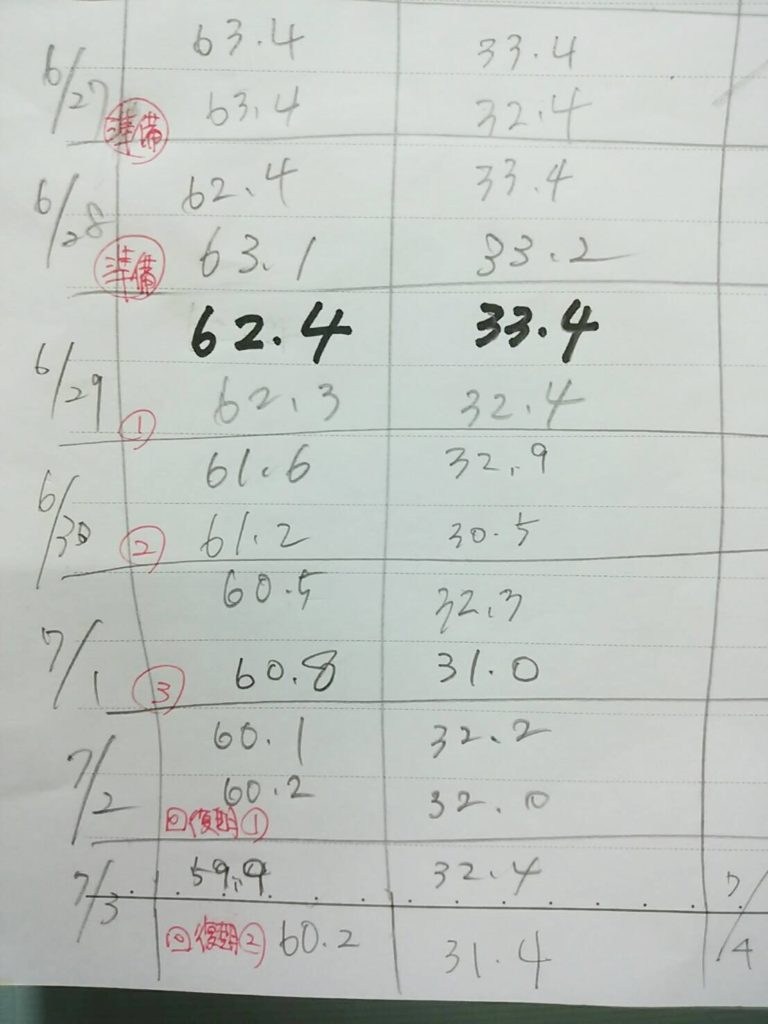 6/27 63.4 33.4
準備 63.4 32.4
6/28 62.4 33.4
準備 63.1 33.2
6/29 62.4 33.4
① 62.3 32.4
6/30 61.6 32.9
② 61.2 30.5
7/1 60.5 32.3
③ 60.8 31.0
7/2 60.1 32.2
60.2 32.0
回復期①
7/3 59.9 32.4
回復期② 60.2 31.4
7/4